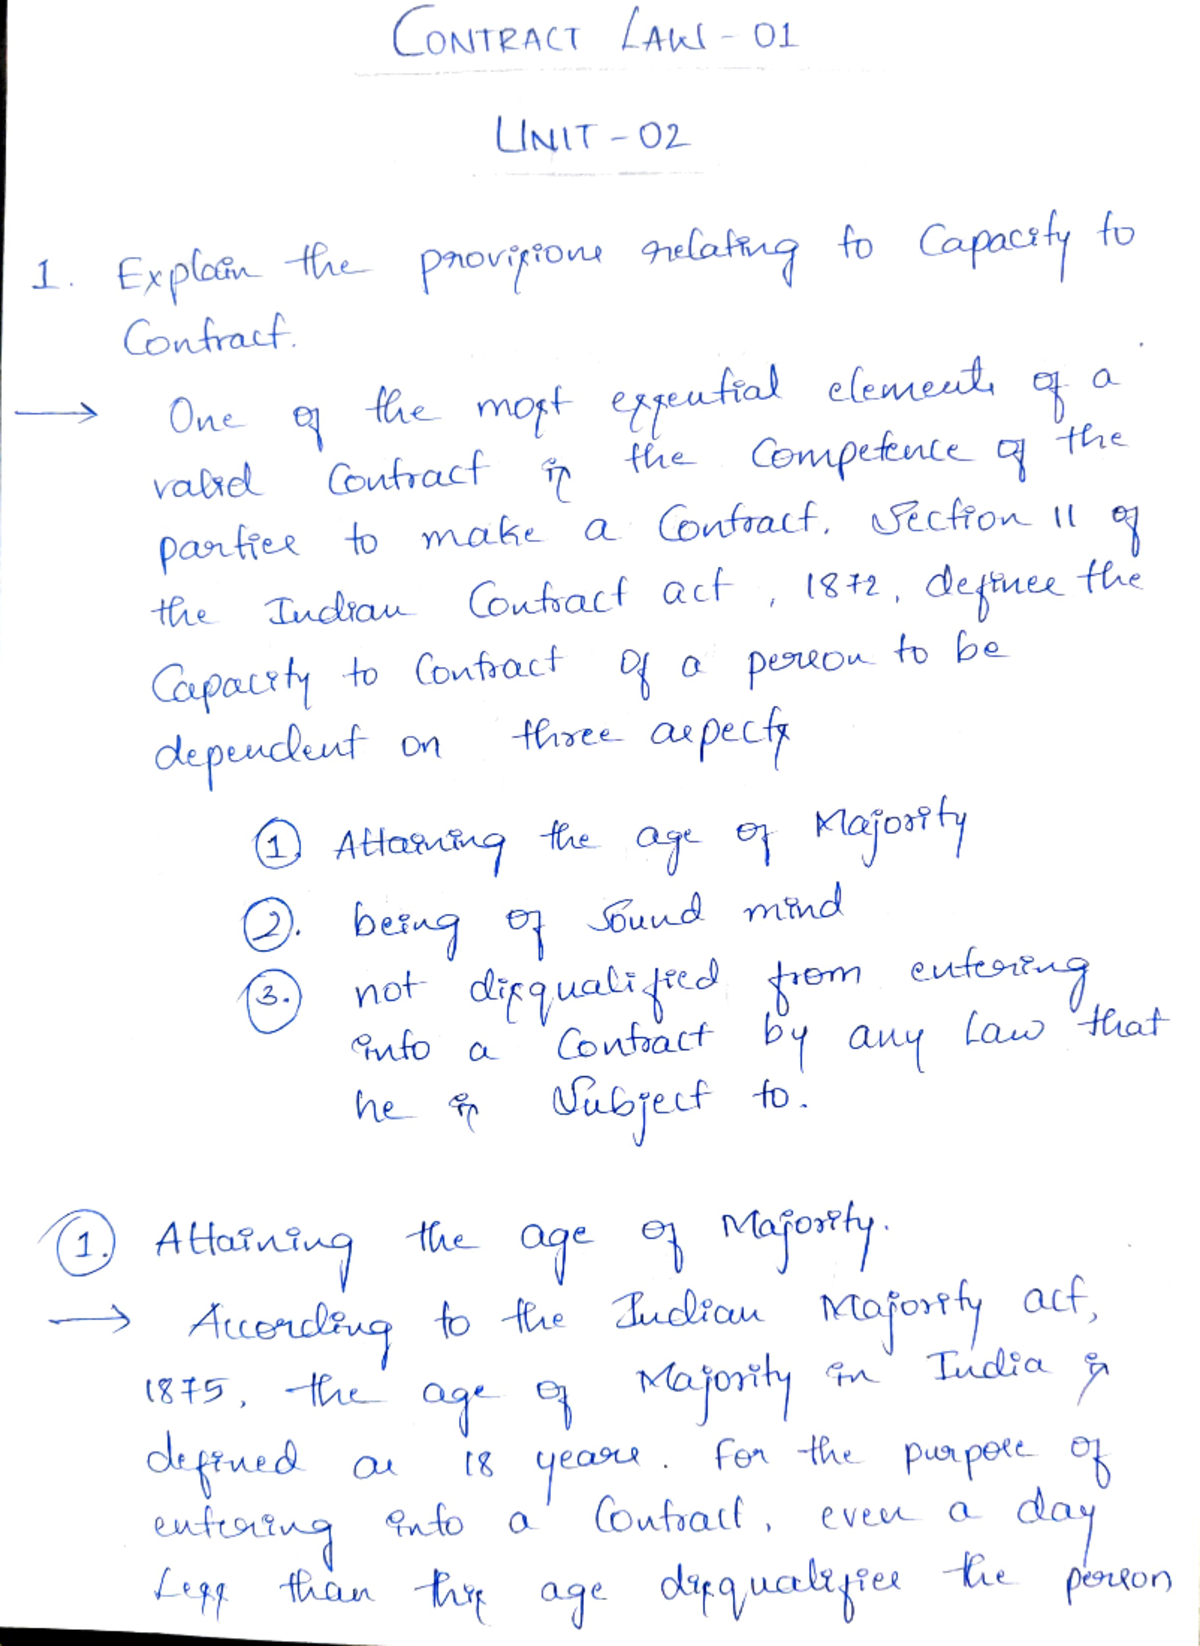 CONTRACT LAW - 01
UNIT - 02
1. Explain the provisions relating to Capacity to
Contract.
→ One of the most essential elements of a
valid Contract is the Competence of the
parties to make a Contract. Section 11 of
the Indian Contract act, 1872, defines the
Capacity to Contract of a person to be
dependent on three aspects
1. Attaining the age of Majority
2. being of sound mind
3. not disqualified from entering
into a Contract by any Law that
he is Subject to.
1. Attaining the age of Majority.
→ According to the Indian Majority act,
1875, the age of Majority in India is
defined as 18 years. For the purpose of
entering into a Contract, even a day
Less than this age disqualifies the person